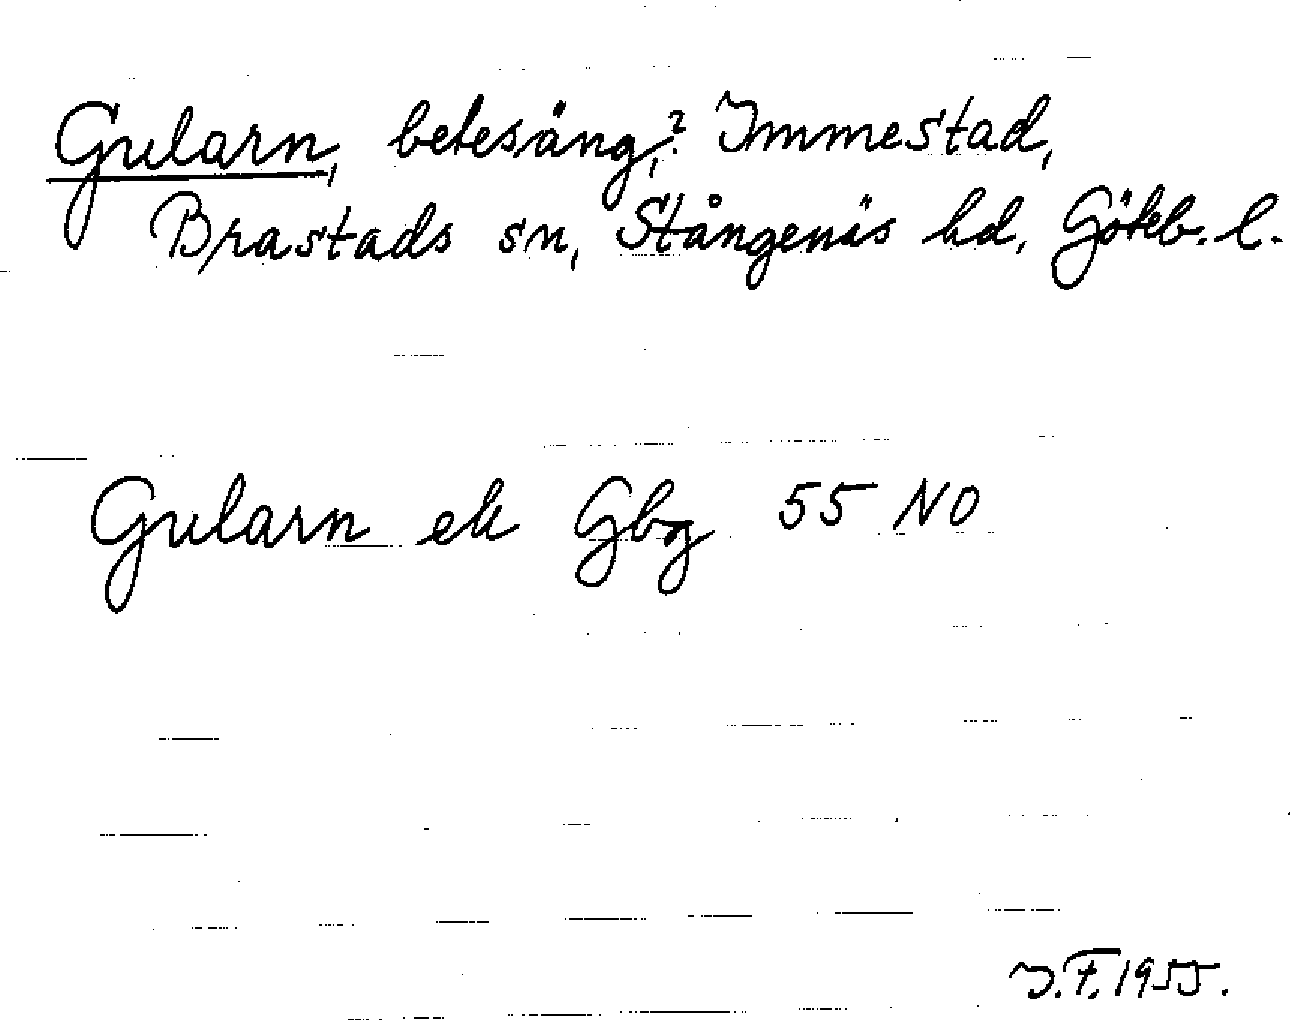 Gularn, betesäng,? Immestad,
Brastads sn, Stångenäs hd, Göteb. l.
Gularn ek Gbg 55 NO
I.F. 1955.